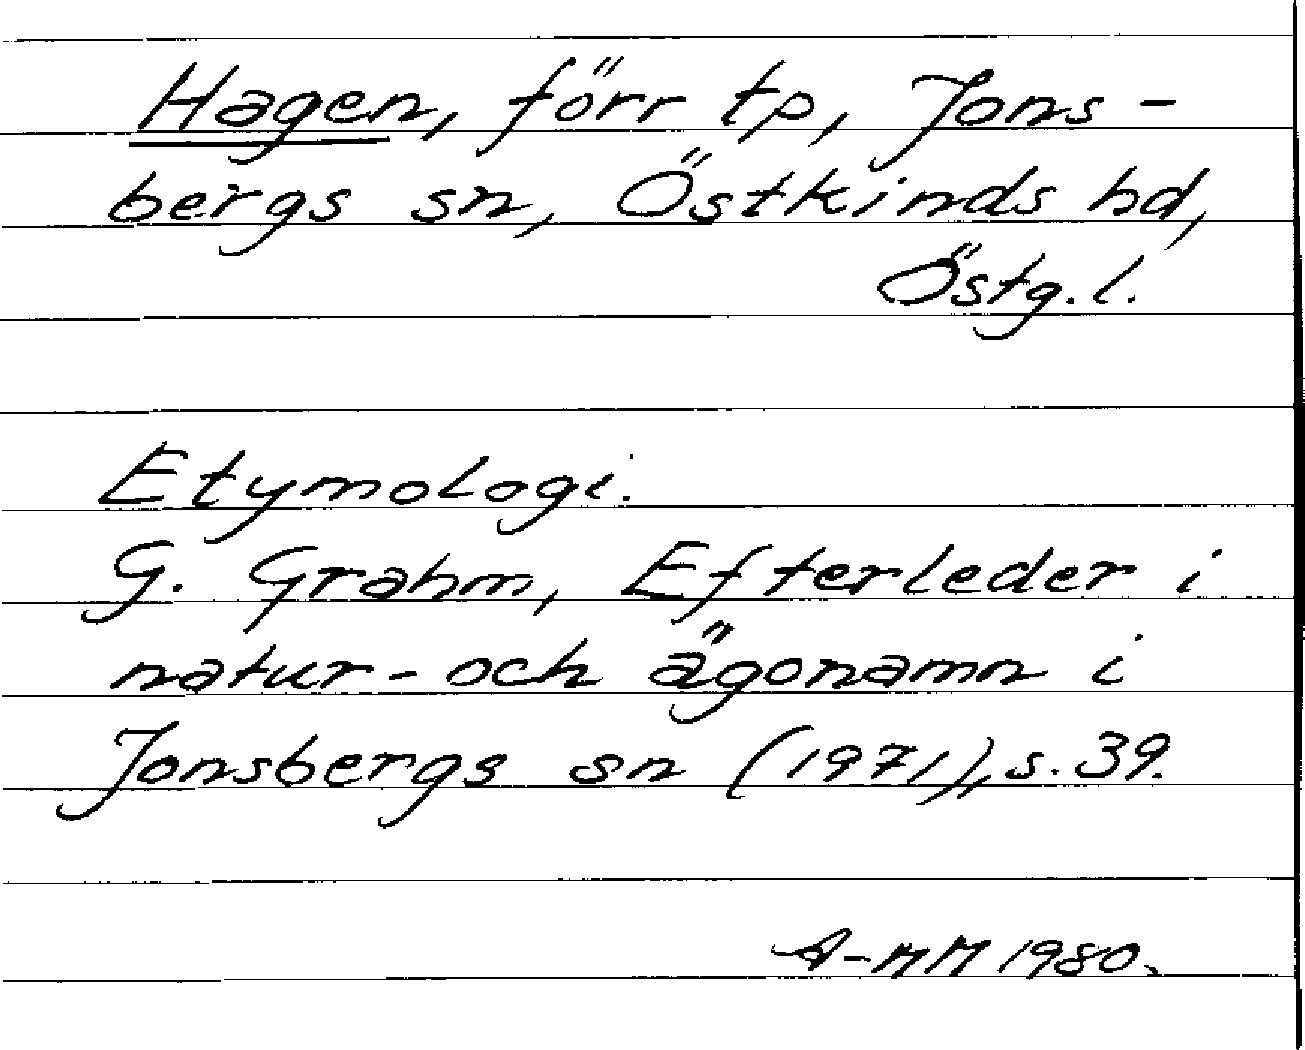 Hagen, förr tp, Jons-
bergs sn, Östkinds hd,
Östg.l.
Etymologi.
G. Grahm, Efterleder i
natur- och ägonamn i
Jonsbergs sn (1971), s. 39.
A-MM 1980.